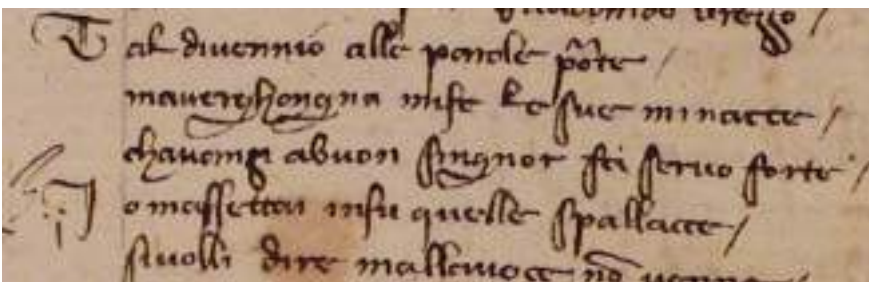 guardando arezzo /
Tal divennio alle parole porte /
maverghongna mife le sue minacce /
abuon singnor fa servo forte /
Io massettai insu quelle spallacce /
sivolli dire mallavoce nō venne /